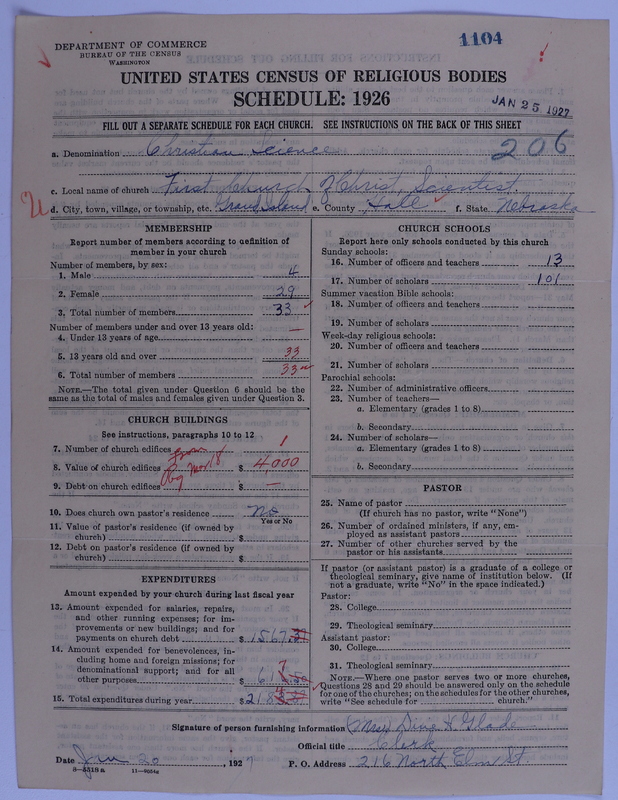 DEPARTMENT OF COMMERCE
BUREAU OF THE CENSUS
WASHINGTON
1104
UNITED STATES CENSUS OF RELIGIOUS BODIES
SCHEDULE: 1926
JAN 25 1927
FILL OUT A SEPARATE SCHEDULE FOR EACH CHURCH. SEE INSTRUCTIONS ON THE BACK OF THIS SHEET
206
a. Denomination Christian Science
c. Local name of church First Church of Christ, Scientist
d. City, town, village, or township, etc. Grand Island e. County Hall f. State Nebraska
MEMBERSHIP
Report number of members according to definition of
member in your church
Number of members, by sex:
1. Male 4
2. Female 29
3. Total number of members 33
Number of members under and over 13 years old:
4. Under 13 years of age —
5. 13 years old and over 33
6. Total number of members 33
NOTE.—The total given under Question 6 should be
same as the total of males and females given under Question 3.
CHURCH BUILDINGS
See instructions, paragraphs 10 to 12
7. Number of church edifices 1
8. Value of church edifices $ 4000
9. Debt on church edifices $ —
10. Does church own pastor's residence No
Yes or No
11. Value of pastor's residence (if owned by
church) $
12. Debt on pastor's residence (if owned by
church) $
EXPENDITURES
Amount expended by your church during last fiscal year
13. Amount expended for salaries, repairs,
and other running expenses; for im-
provements or new buildings; and for
payments on church debt $ 1567
14. Amount expended for benevolences, in-
cluding home and foreign missions; for
denominational support; and for all
other purposes $ 61
15. Total expenditures during year $ 218
CHURCH SCHOOLS
Report here only schools conducted by this church
Sunday schools:
16. Number of officers and teachers 13
17. Number of scholars 101
Summer vacation Bible schools:
18. Number of officers and teachers
19. Number of scholars
Week-day religious schools:
20. Number of officers and teachers
21. Number of scholars
Parochial schools:
22. Number of administrative officers
23. Number of teachers—
a. Elementary (grades 1 to 8)
b. Secondary
24. Number of scholars—
a. Elementary (grades 1 to 8)
b. Secondary
PASTOR
25. Name of pastor
(If church has no pastor, write "None")
26. Number of ordained ministers, if any, em-
ployed as assistant pastors
27. Number of other churches served by the
pastor or his assistants
If pastor (or assistant pastor) is a graduate of a college or
theological seminary, give name of institution below. (If
not a graduate, write "No" in the space indicated.)
Pastor:
28. College
29. Theological seminary
Assistant pastor:
30. College
31. Theological seminary
NOTE.—Where one pastor serves two or more churches,
Questions 28 and 29 should be answered only on the schedule
for one of the churches; on the schedules for the other churches,
write "See schedule for church."
Signature of person furnishing information Mrs
Official title Clerk
Date Jan 20, 1927 P. O. Address 216 North Elm St.
8—5518a 11—9054a